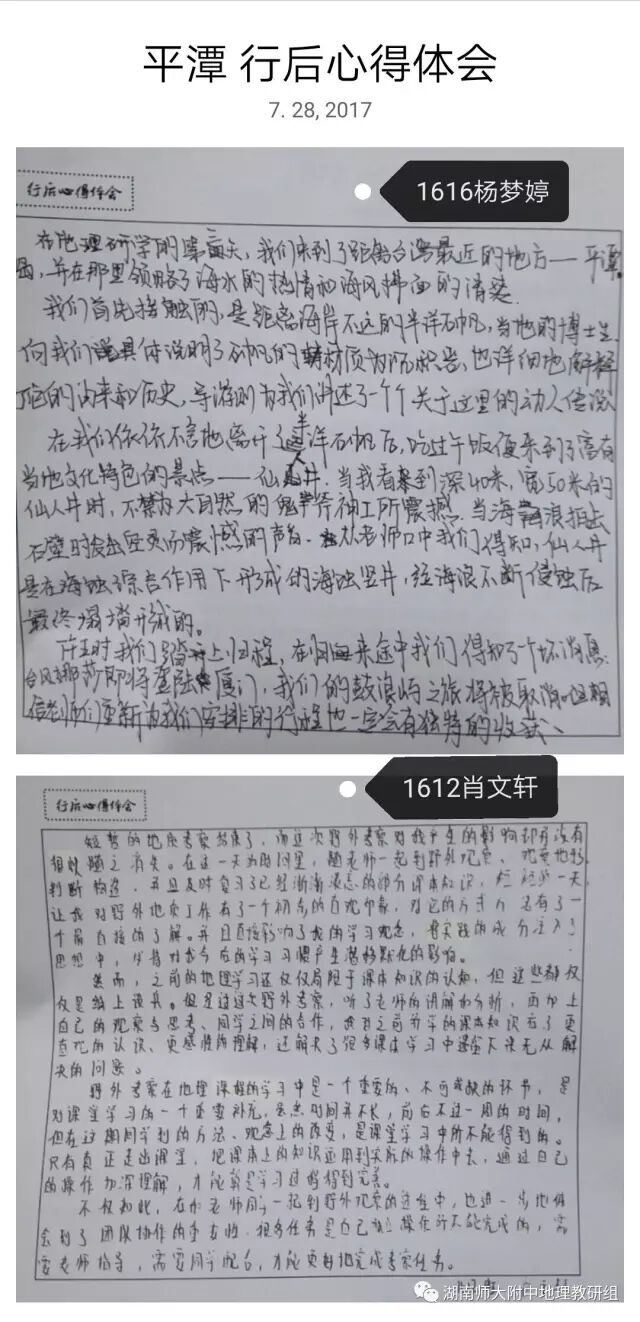 平潭 行后心得体会
7. 28, 2017
行后心得体会
1616杨梦婷
在地理研学的第天,我们来到了距离台湾最近的地方——平潭
岛,并在那里领略了海水的热情和海风拂面的清爽.
我们首先接触的,是距离海岸不远的半洋石帆,当地的博士生
向我们具体说明了石帆的材质为沉积岩,也详细地解释
它的由来和历史,导游则为我们讲述了一个个关于这里的动人传说
在我们依依不舍地离开了半洋石帆后,吃过午饭便来到了富有
当地文化特色的景点——仙人井.当我看到深40米,宽50米的
仙人井时,不禁为大自然的鬼斧神工所震撼.当海浪拍击
石壁时发出而震撼的声音.从老师口中我们得知,仙人井
是在海蚀综合作用下形成的海蚀竖井,经海浪不断侵蚀后
最终塌形成的。
时我们踏上归程,在归来途中我们得知了一个坏消息:
台风纳莎即将登陆厦门,我们的鼓浪屿之旅将被取消.但相
信老师们重新为我们安排的行程也一定会有独特的收获、
行后心得体会
1612肖文轩
短暂的地质考察结束了,而这次野外考察对我产生的影响却并没有
随之消失。在这一天的时间里,随老师一起到野外观察、观察地形
判断构造,并且及时复习了已经渐渐淡忘的部分课本知识,短短一天,
让我对野外地质工作有了一个初步的直观印象,对它的方式也有了一
个最直接的了解。并且直接影响了我的学习观念,将实践的成分注入了
思想中,必将对我今后的学习习惯产生潜移默化的影响。
然而,之前的地理学习还仅仅局限于课本知识的认知,但这些都仅
仅是纸上谈兵。但是通过这次野外考察,听了老师的讲解和分析,再加上
自己的观察与思考、同学之间的合作,我对之前所学的课本知识有了更
直观的认识、更感性的理解,还解决了很多课本学习中遗留下来无从解
决的问题。
野外考察在地理课程的学习中是一个重要的、不可或缺的环节,是
对课堂学习的一个重要补充。虽然时间并不长,前后不过一周的时间,
但在这期间学到的方法、观念上的改变,是课堂学习中所不能得到的。
只有真正走出课堂,把课本上的知识运用到实际的操作中去,通过自己
的操作加深理解,才能学习过得到完善。
不仅如此,在和老师同学一起到野外观察的过程中,也进一步地体
会到了团队协作的重要性.很多任务是自己操作所不能完成的,需
要老师指导,需要同学配合,才能更好地完成考察任务。
湖南师大附中地理教研组